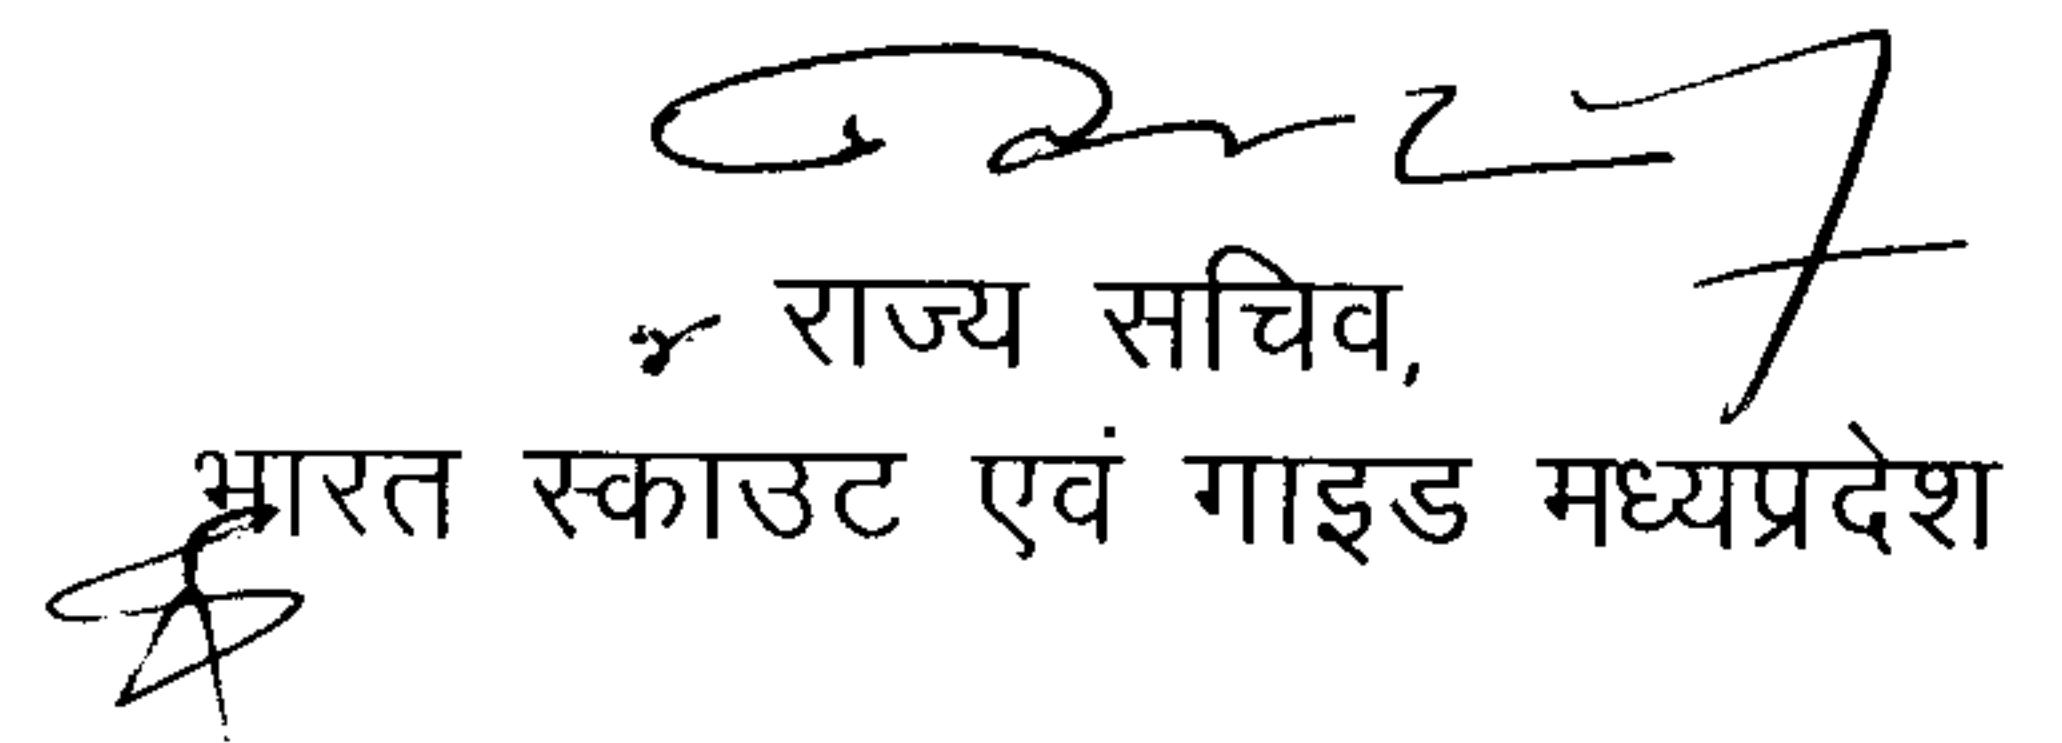 राज्य सचिव,
भारत स्काउट एवं गाइड मध्यप्रदेश